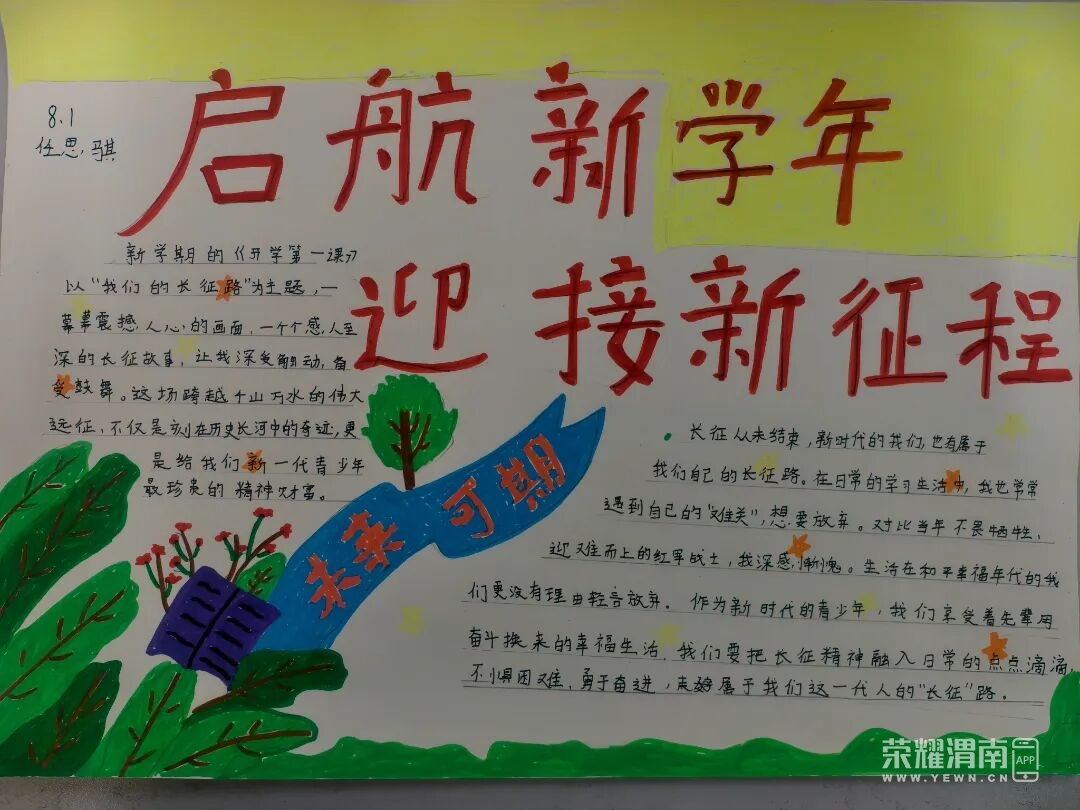 8.1
任思骐
启航新学年
迎接新征程
新学期的《开学第一课》
以“我们的长征路”为主题,一
幕幕震撼人心的画面,一个个感人至
深的长征故事,让我深受触动,备
受鼓舞。这场跨越千山万水的伟大
远征,不仅是刻在历史长河中的奇迹,更
是给我们新一代青少年
最珍贵的精神财富。
未来可期
长征从未结束,新时代的我们,也有属于
我们自己的长征路。在日常的学习生活中,我也常常
遇到自己的“难关”,想要放弃。对比当年不畏牺牲、
迎难而上的红军战士,我深感惭愧。生活在和平幸福年代的我
们更没有理由轻言放弃。作为新时代的青少年,我们享受着先辈用
奋斗换来的幸福生活,我们要把长征精神融入日常的点点滴滴,
不惧困难、勇于奋进,走好属于我们这一代人的“长征”路。
荣耀渭南 APP
WWW.YEWN.CN